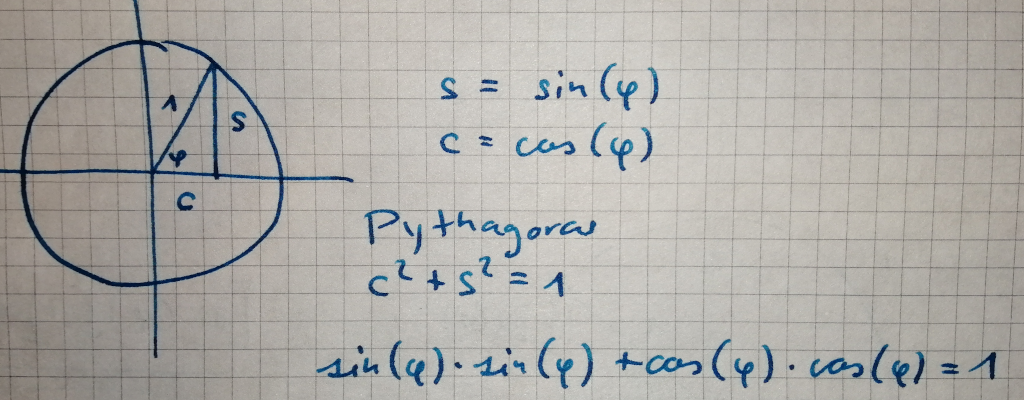 1
s
φ
c
s = sin(φ)
c = cos(φ)
Pythagoras
c² + s² = 1
sin(φ) · sin(φ) + cos(φ) · cos(φ) = 1